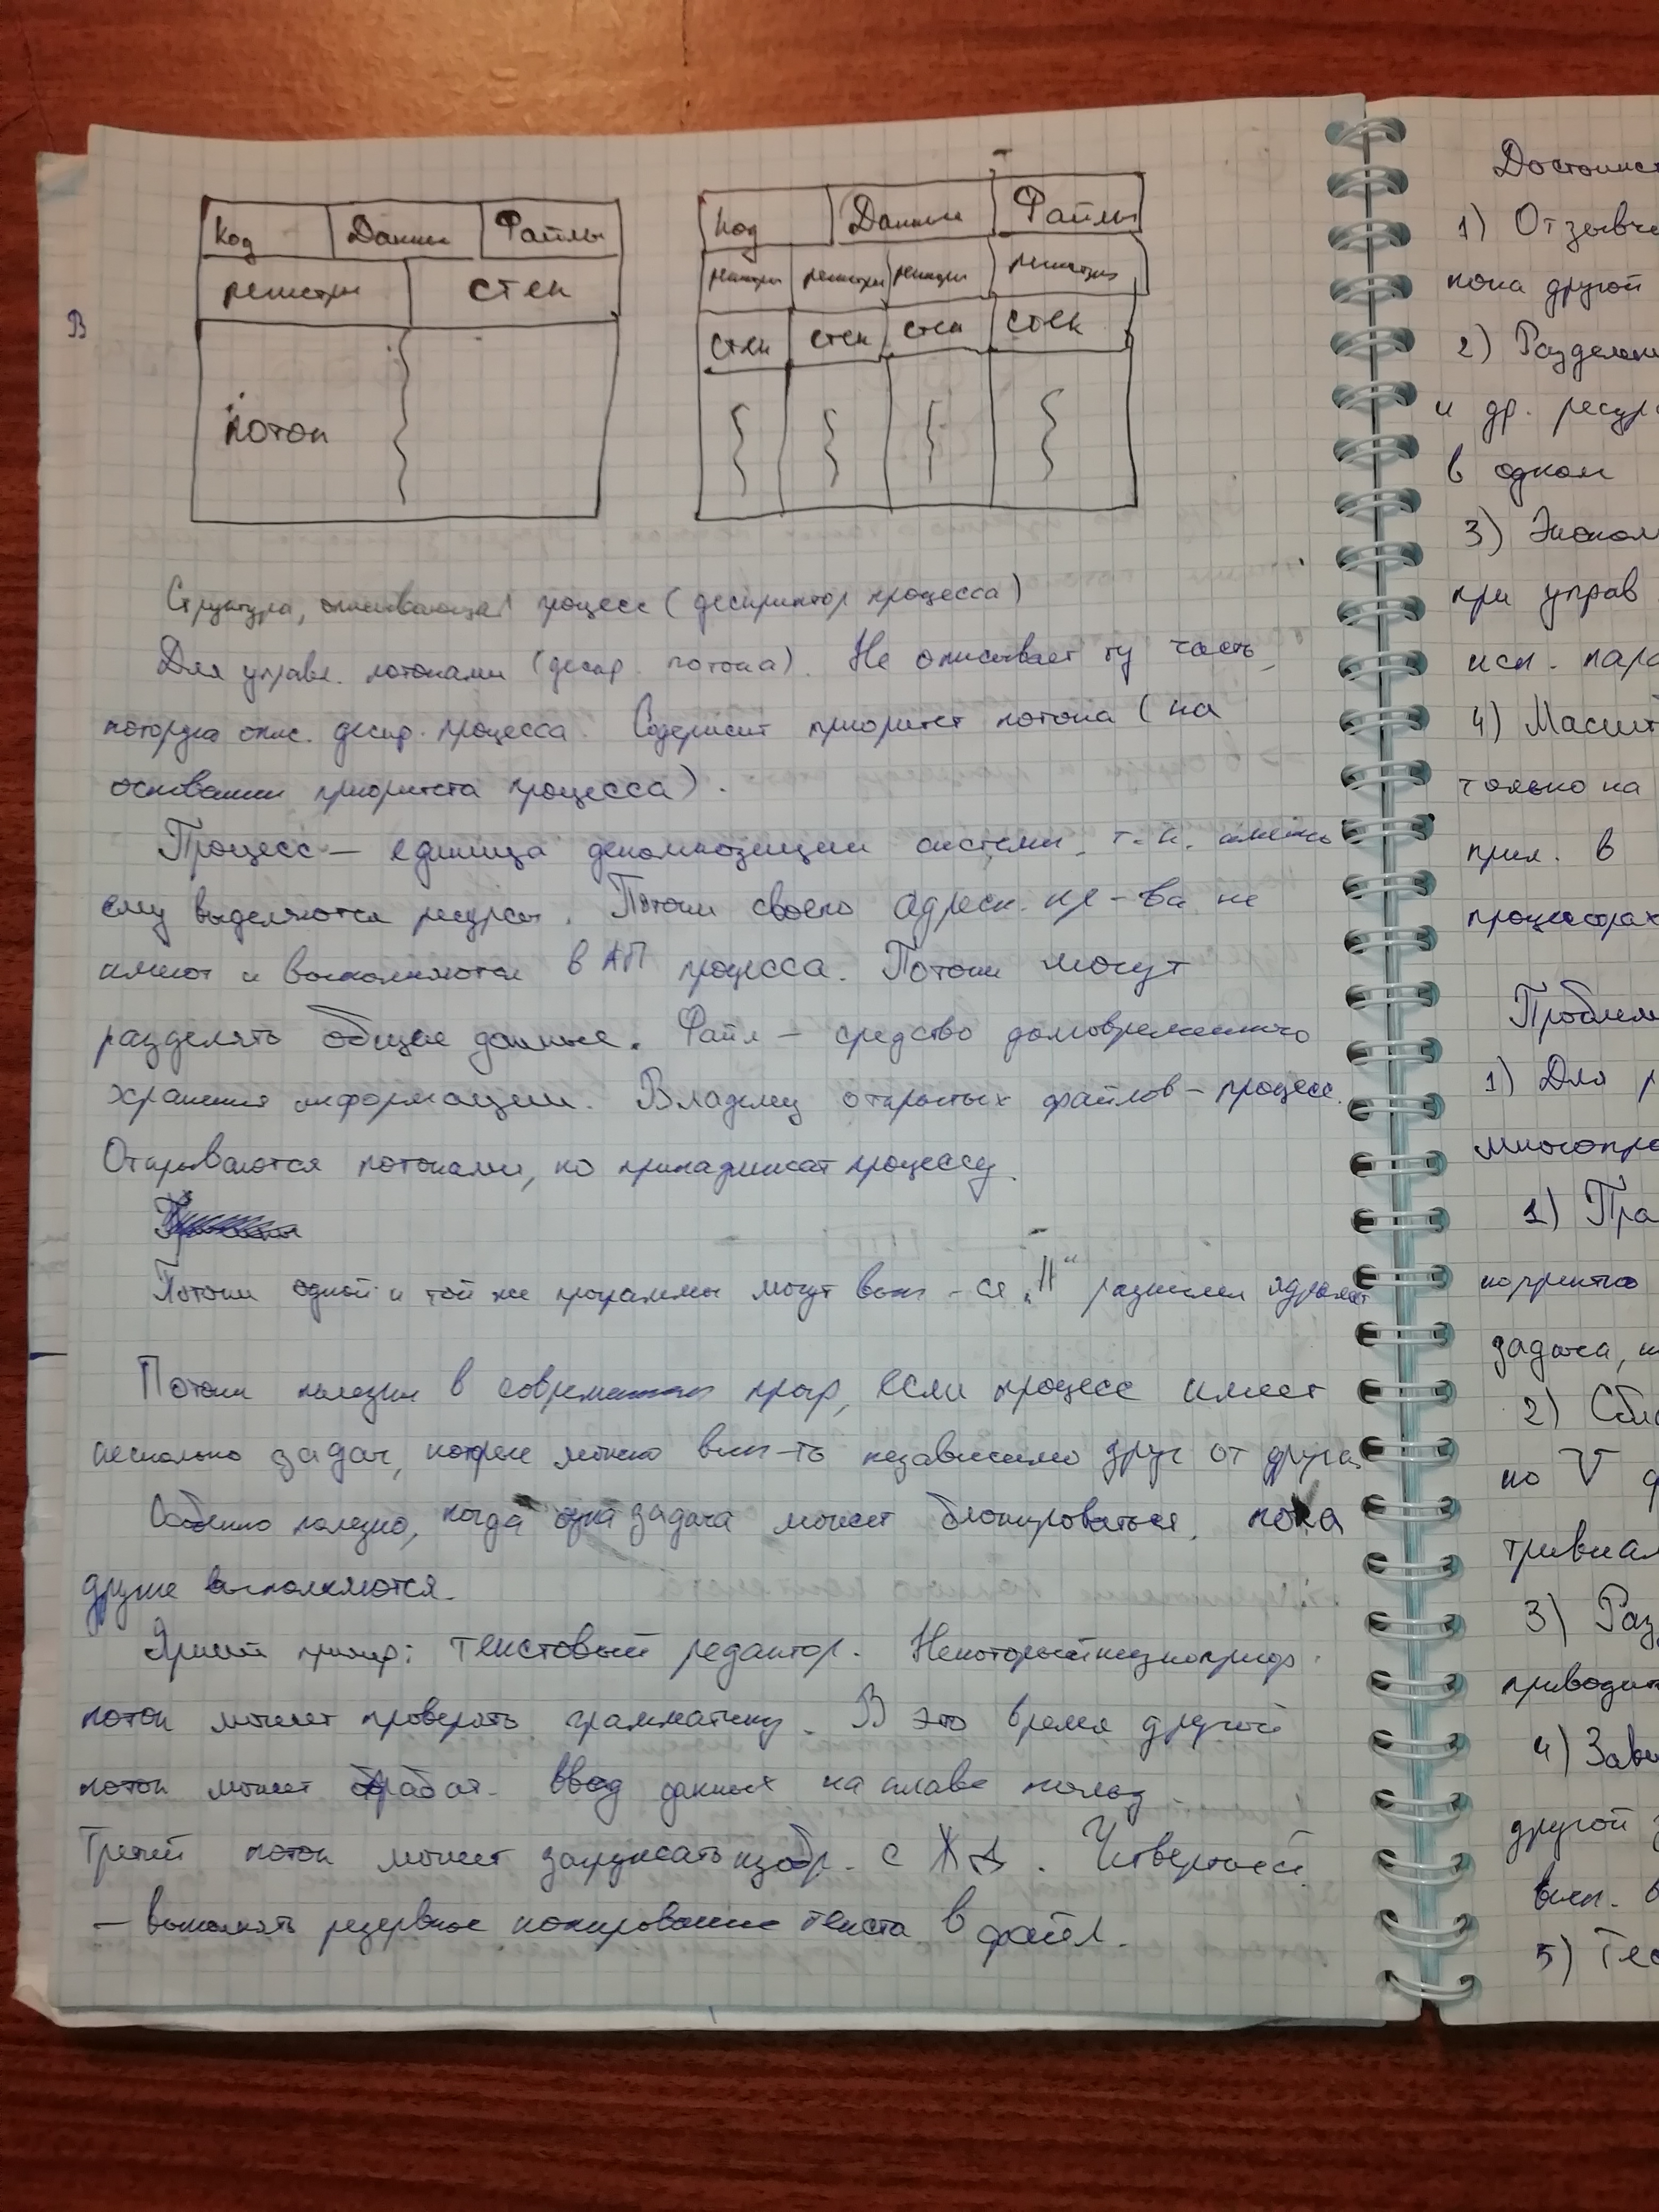 Код Данные Файлы
регистры стек
поток
Код Данные Файлы
регистры регистры регистры регистры
стек стек стек стек
В
Структура, описывающая процесс (дескриптор процесса)
Для управл. потоками (дескр. потока). Не описывает ту часть,
которую опис. дескр. процесса. Содержит приоритет потока (на
основании приоритета процесса).
Процесс – единица декомпозиции системы, т.к. именно
ему выделяются ресурсы. Потоки своего адресн. пр-ва не
имеют и выполняются в АП процесса. Потоки могут
разделять общие данные. Файл – средство долговременного
хранения информации. Владелец открытых файлов – процесс.
Открываются потоками, но принадлежат процессу.
Потоки одной и той же программы могут вып-ся "||" разными ядрами
Потоки полезны в современных прогр, если процесс имеет
несколько задач, которые можно вып-ть независимо друг от друга.
Особенно полезно, когда одна задача может блокироваться, пока
другие выполняются.
Яркий пример: текстовый редактор. Некоторый низкоприор.
поток может проверять грамматику. В это время другой
поток может обработ. ввод данных на клаве польз.
Третий поток может загружать изобр. с ЖД. Четвертый
– выполнять резервное копирование текста в файл.
Достоинст
1) Отзывчи
пока другой
2) Разделени
и др. ресур
в одном
3) Эконом
при управ
исп. пара
4) Масшт
только на
прил. в
процессорах
Проблем
1) Для р
многопро
1) Пра
корректно
задача,
2)
по
тривиал
3) Раз
приводит
4) Зави
другой з
вып. в
5) Тес